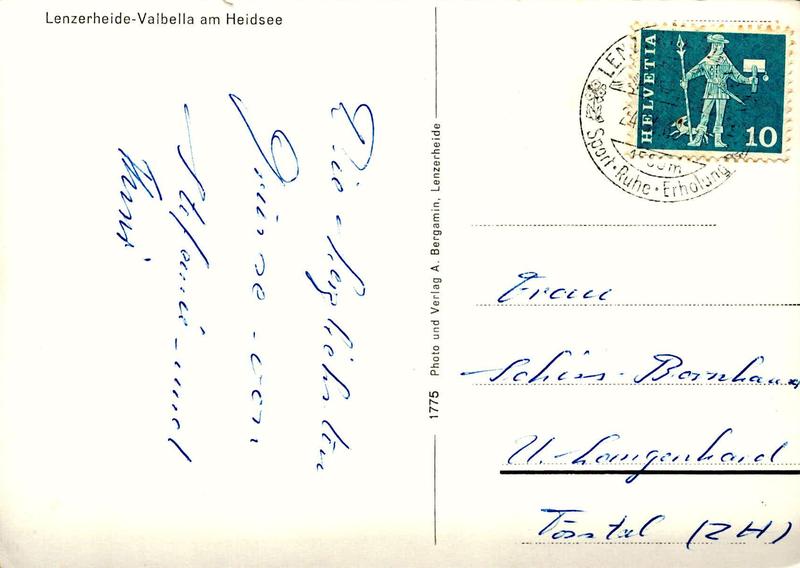 Lenzerheide-Valbella am Heidsee
Die herzlichsten
Grüsse von
Stefanie und
Hansi
1775 Photo und Verlag A. Bergamin, Lenzerheide
HELVETIA
10
1500m
Sport · Ruhe · Erholung
Frau
Schiess-Bornhauser
U. Langenhard
Tösstal (ZH)